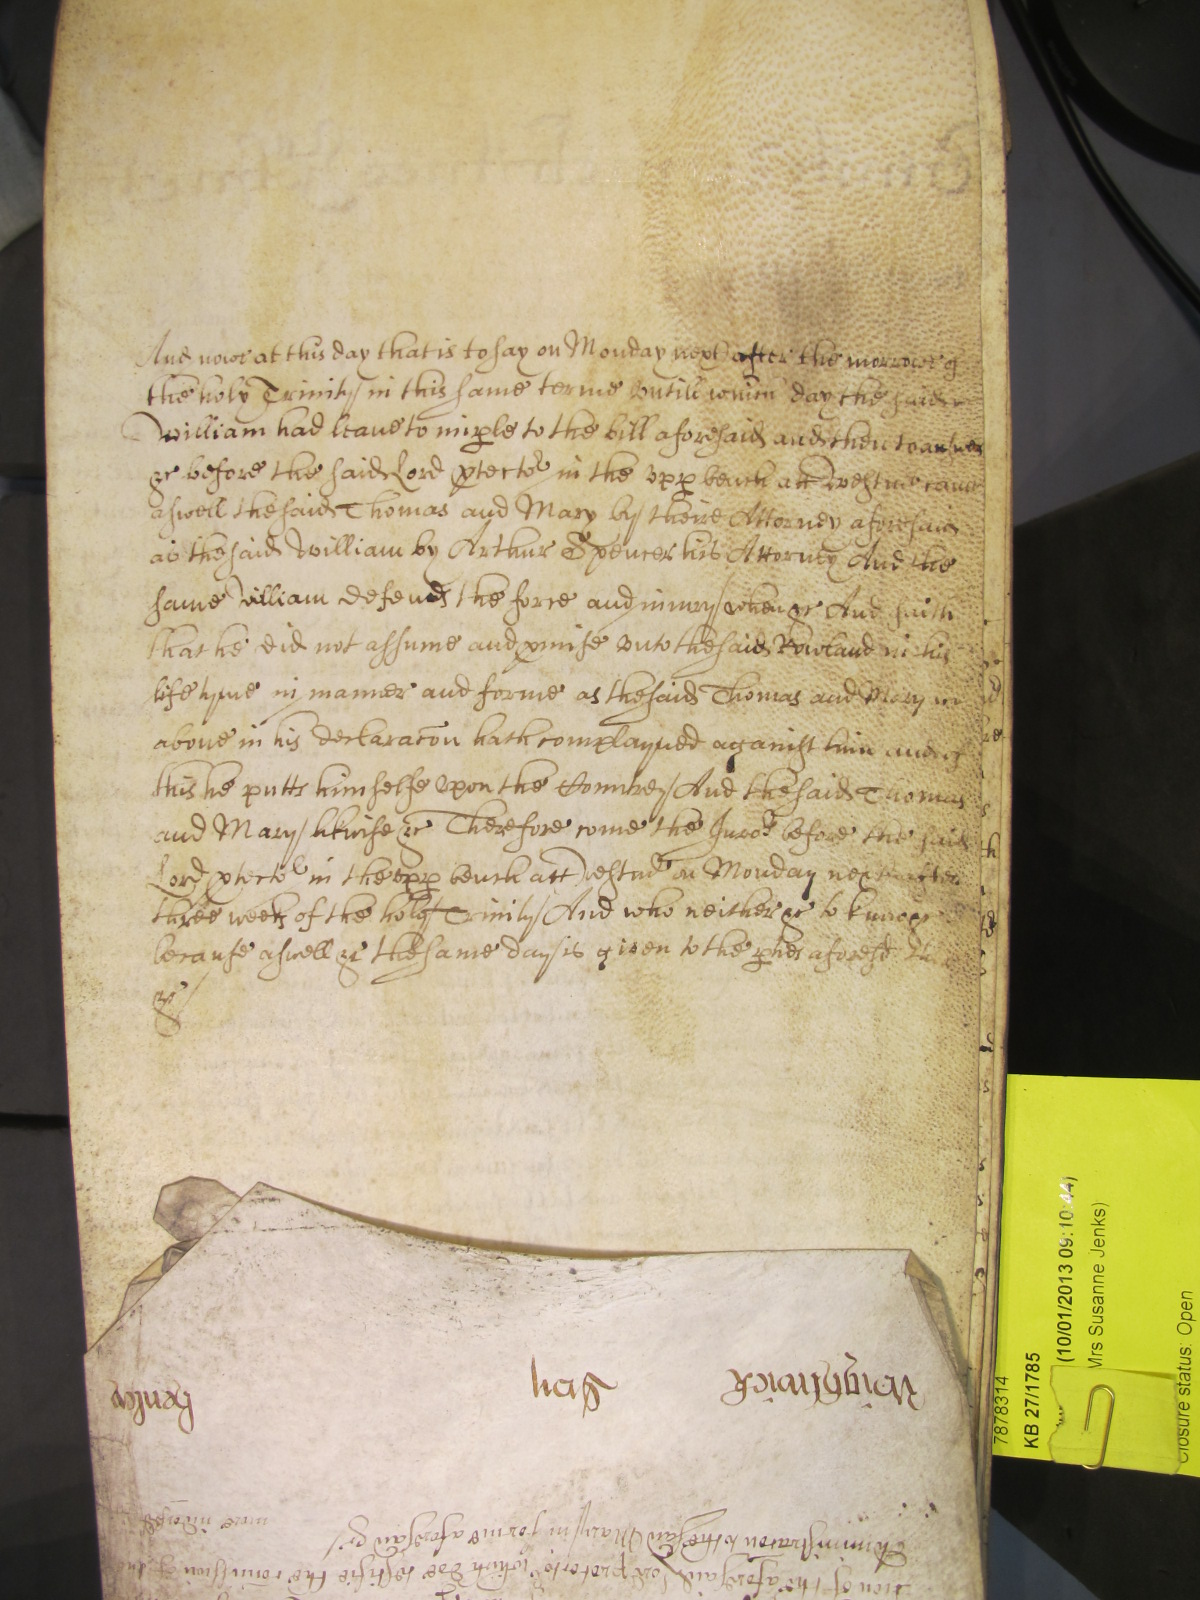 And nowe at this day that is to say on Monday next after the morrowe of
the holy Trinity in this same terme untill which day the said
William had leave to imple to the bill aforesaid and then to answer
&c before the said Lord ptector in the upp bench att Westm came
aswell the said Thomas and Mary by theire Attorney aforesaid
as the said William by Arthur Spencer his Attorney And the
same William defends the force and iniury when &c And saith
that he did not assume and pmise unto the said Rowland in his
life tyme in manner and forme as the said Thomas and Mary
above in his declaracon hath complayned against him and of
this he putts himselfe upon the Countrey And the said Thomas
and Mary likwise &c Therefore come the Juro before the said
Lord ptector in the upp bench att Westm on Monday next after
three weeks of the holy Trinity And who neither &c to knowe
because aswell &c the same day is given to the pties aforesd
&c
7878314
KB 27/1785
(10/01/2013 09:10:44)
Mrs Susanne Jenks)
Closure status: Open
Wightwick Gen Henley
dcon of the aforesaid Lord protector which doe testifie the comission of the
Administracon to the said Mary in forme aforesaid &c